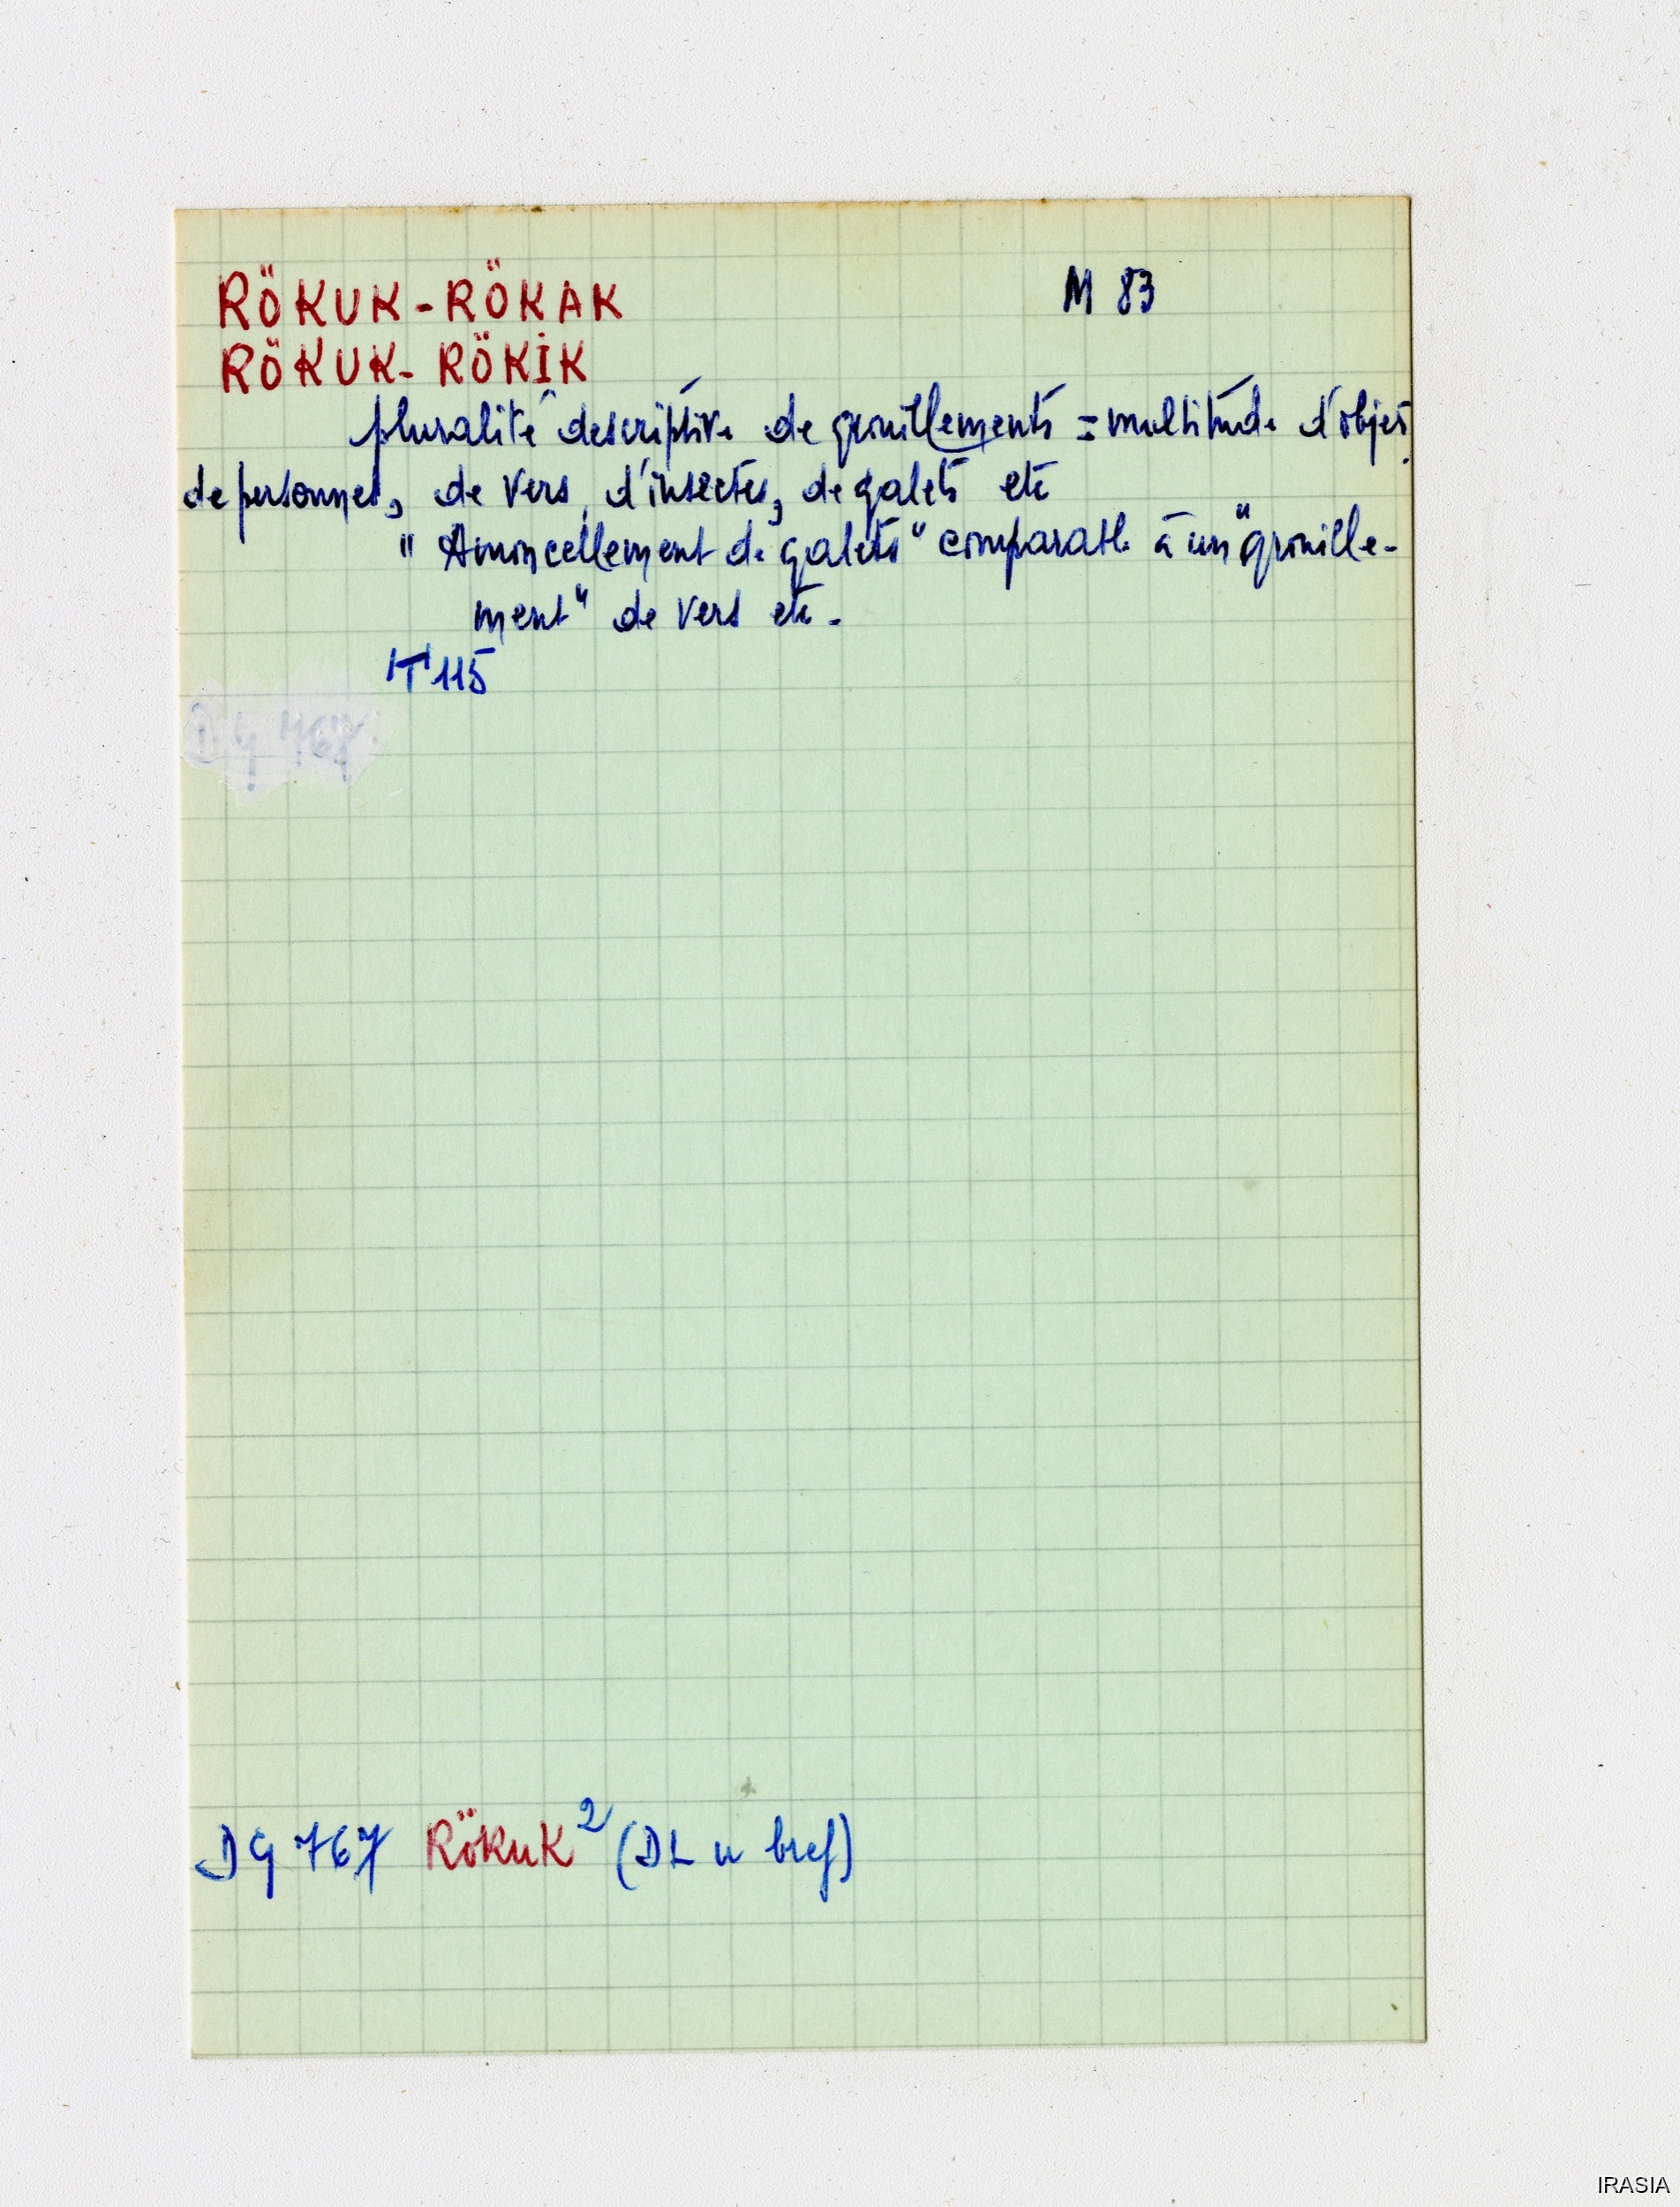 RÖKUK-RÖKAK M 83
RÖKUK-RÖKİK
pluralité descriptive de grouillements = multitude d'objets
de personnes, de vers, d'insectes, de galets etc
"Amoncellement de galets" comparable à un "grouille-
ment" de vers etc.
T 115
DG 767
DG 767 RÖKUK² (DL u bref)
IRASIA